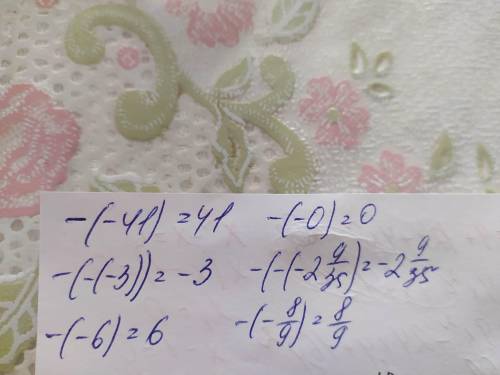 -(-41)=41 -(-0)=0
-(-(-3))=-3 -(-(-2 9/35)=-2 9/35
-(-6)=6 -(-8/9)=8/9